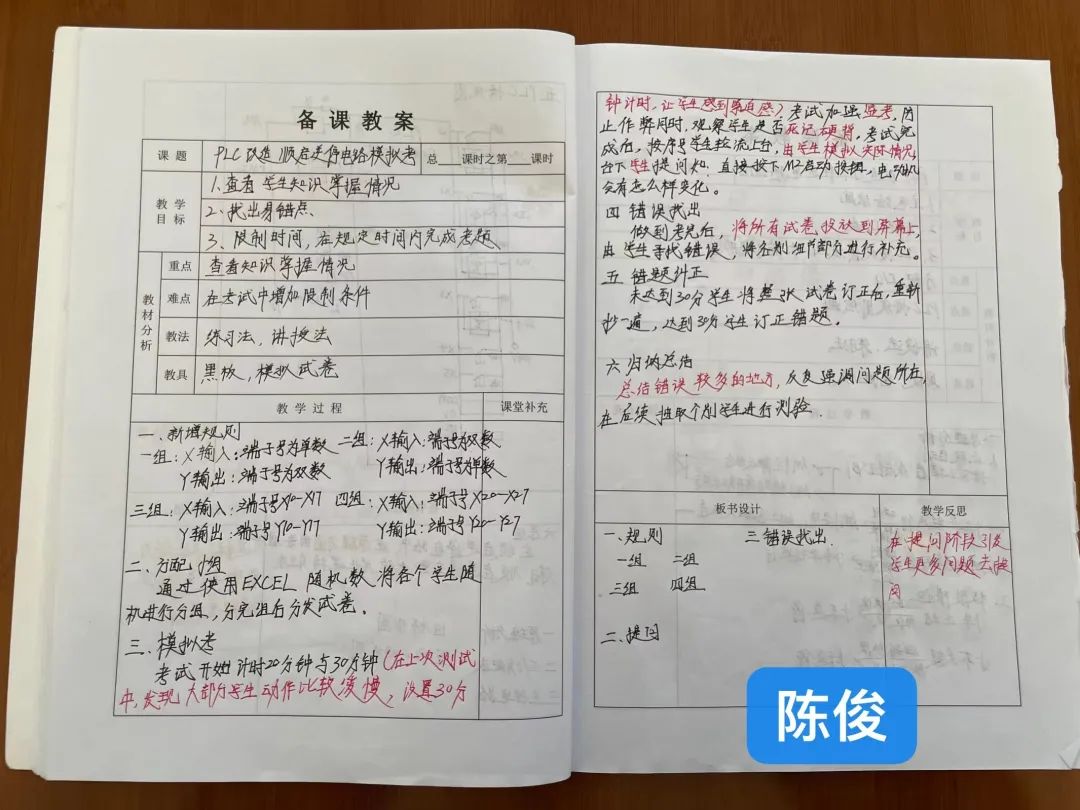 备课教案
课题 PLC改造顺启逆停电路模拟考 总 课时之第 课时
教学目标
1.查看学生知识掌握情况
2.找出易错点.
3、限制时间,在规定时间内完成考题
教材分析
重点 查看知识掌握情况
难点 在考试中增加限制条件
教法 练习法,讲授法
教具 黑板,模拟试卷
教学过程 课堂补充
一、新增规则
一组:X输入:端子号为单数 二组:X输入:端子号为双数
Y输出:端子号为双数 Y输出:端子号为单数
三组:X输入:端子号X10-X17 四组:X输入:端子号X20-X27
Y输出:端子号Y10-Y17 Y输出:端子号Y20-Y27
二、分配小组
通过使用EXCEL随机数将各个学生随
机进行分组,分完组后分发试卷。
三、模拟考
考试开始计时20分钟与30分钟(在上次测试
中,发现大部分学生动作比较缓慢,设置30分
钟计时,让学生感到紧迫感)考试加强监考,防
止作弊同时,观察学生是否死记硬背,考试完
成后,按序号学生轮流上台,由学生模拟实际情况,
台下学生提问如:直接按下M2启动按钮,电动机
会有怎么样变化。
四 错误找出
做到考完后,将所有试卷投放到屏幕上,
由学生寻找错误,将各别细节部分进行补充。
五 错题纠正
未达到30分学生将整张试卷订正后,重新
抄一遍,达到30分学生订正错题。
六 归纳总结
总结错误较多的地方,反复强调问题所在
在后续抽取个别学生进行测验.
板书设计 教学反思
一、规则 三 错误找出.
一组 二组
三组 四组
二、提问
在提问阶段引发
学生更多问题去提
问
陈俊